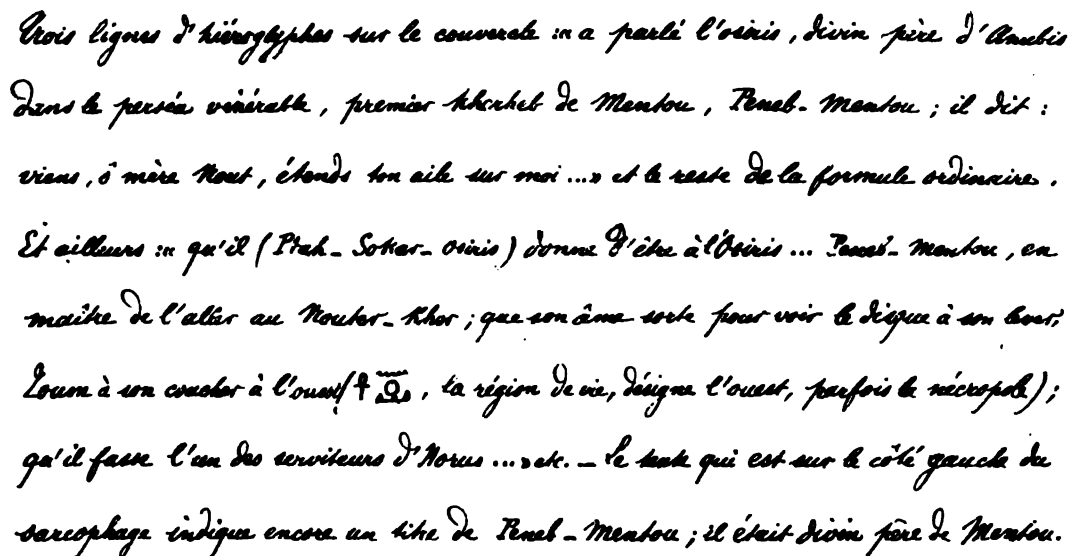 Trois lignes d'hiéroglyphes sur le couvercle : « a parlé l'osiris, divin père d'Anubis
dans le perséa vénérable, premier kherheb de Mentou, Peneb-Mentou ; il dit :
viens, ô mère Nout, étends ton aile sur moi ... » et le reste de la formule ordinaire.
Et ailleurs : « qu'il (Ptah-Sokar-Osiris) donne d'être à l'Osiris ... Peneb-Mentou, en
maître de l'aller au Nouter-Kher ; que son âme sorte pour voir le disque à son lever,
Toum à son coucher à l'ouest ( , la région de vie, désigne l'ouest, parfois la nécropole) ;
qu'il fasse l'un des serviteurs d'Horus ... » etc. _ Le texte qui est sur le côté gauche du
sarcophage indique encore un titre de Peneb-Mentou ; il était divin père de Mentou.